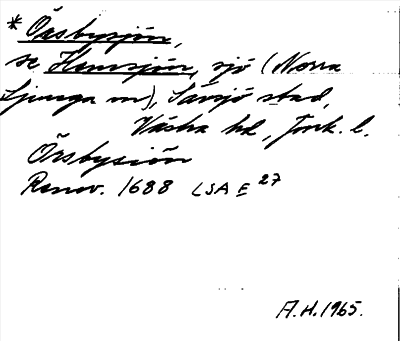 * Örsbysjön,
se Hemsjön, sjö (Norra
Ljunga sn), Sävsjö stad,
Västra hd, Jönk. l.
Örsbysiön
Renov. 1688 LSA E 27
A.H. 1965.